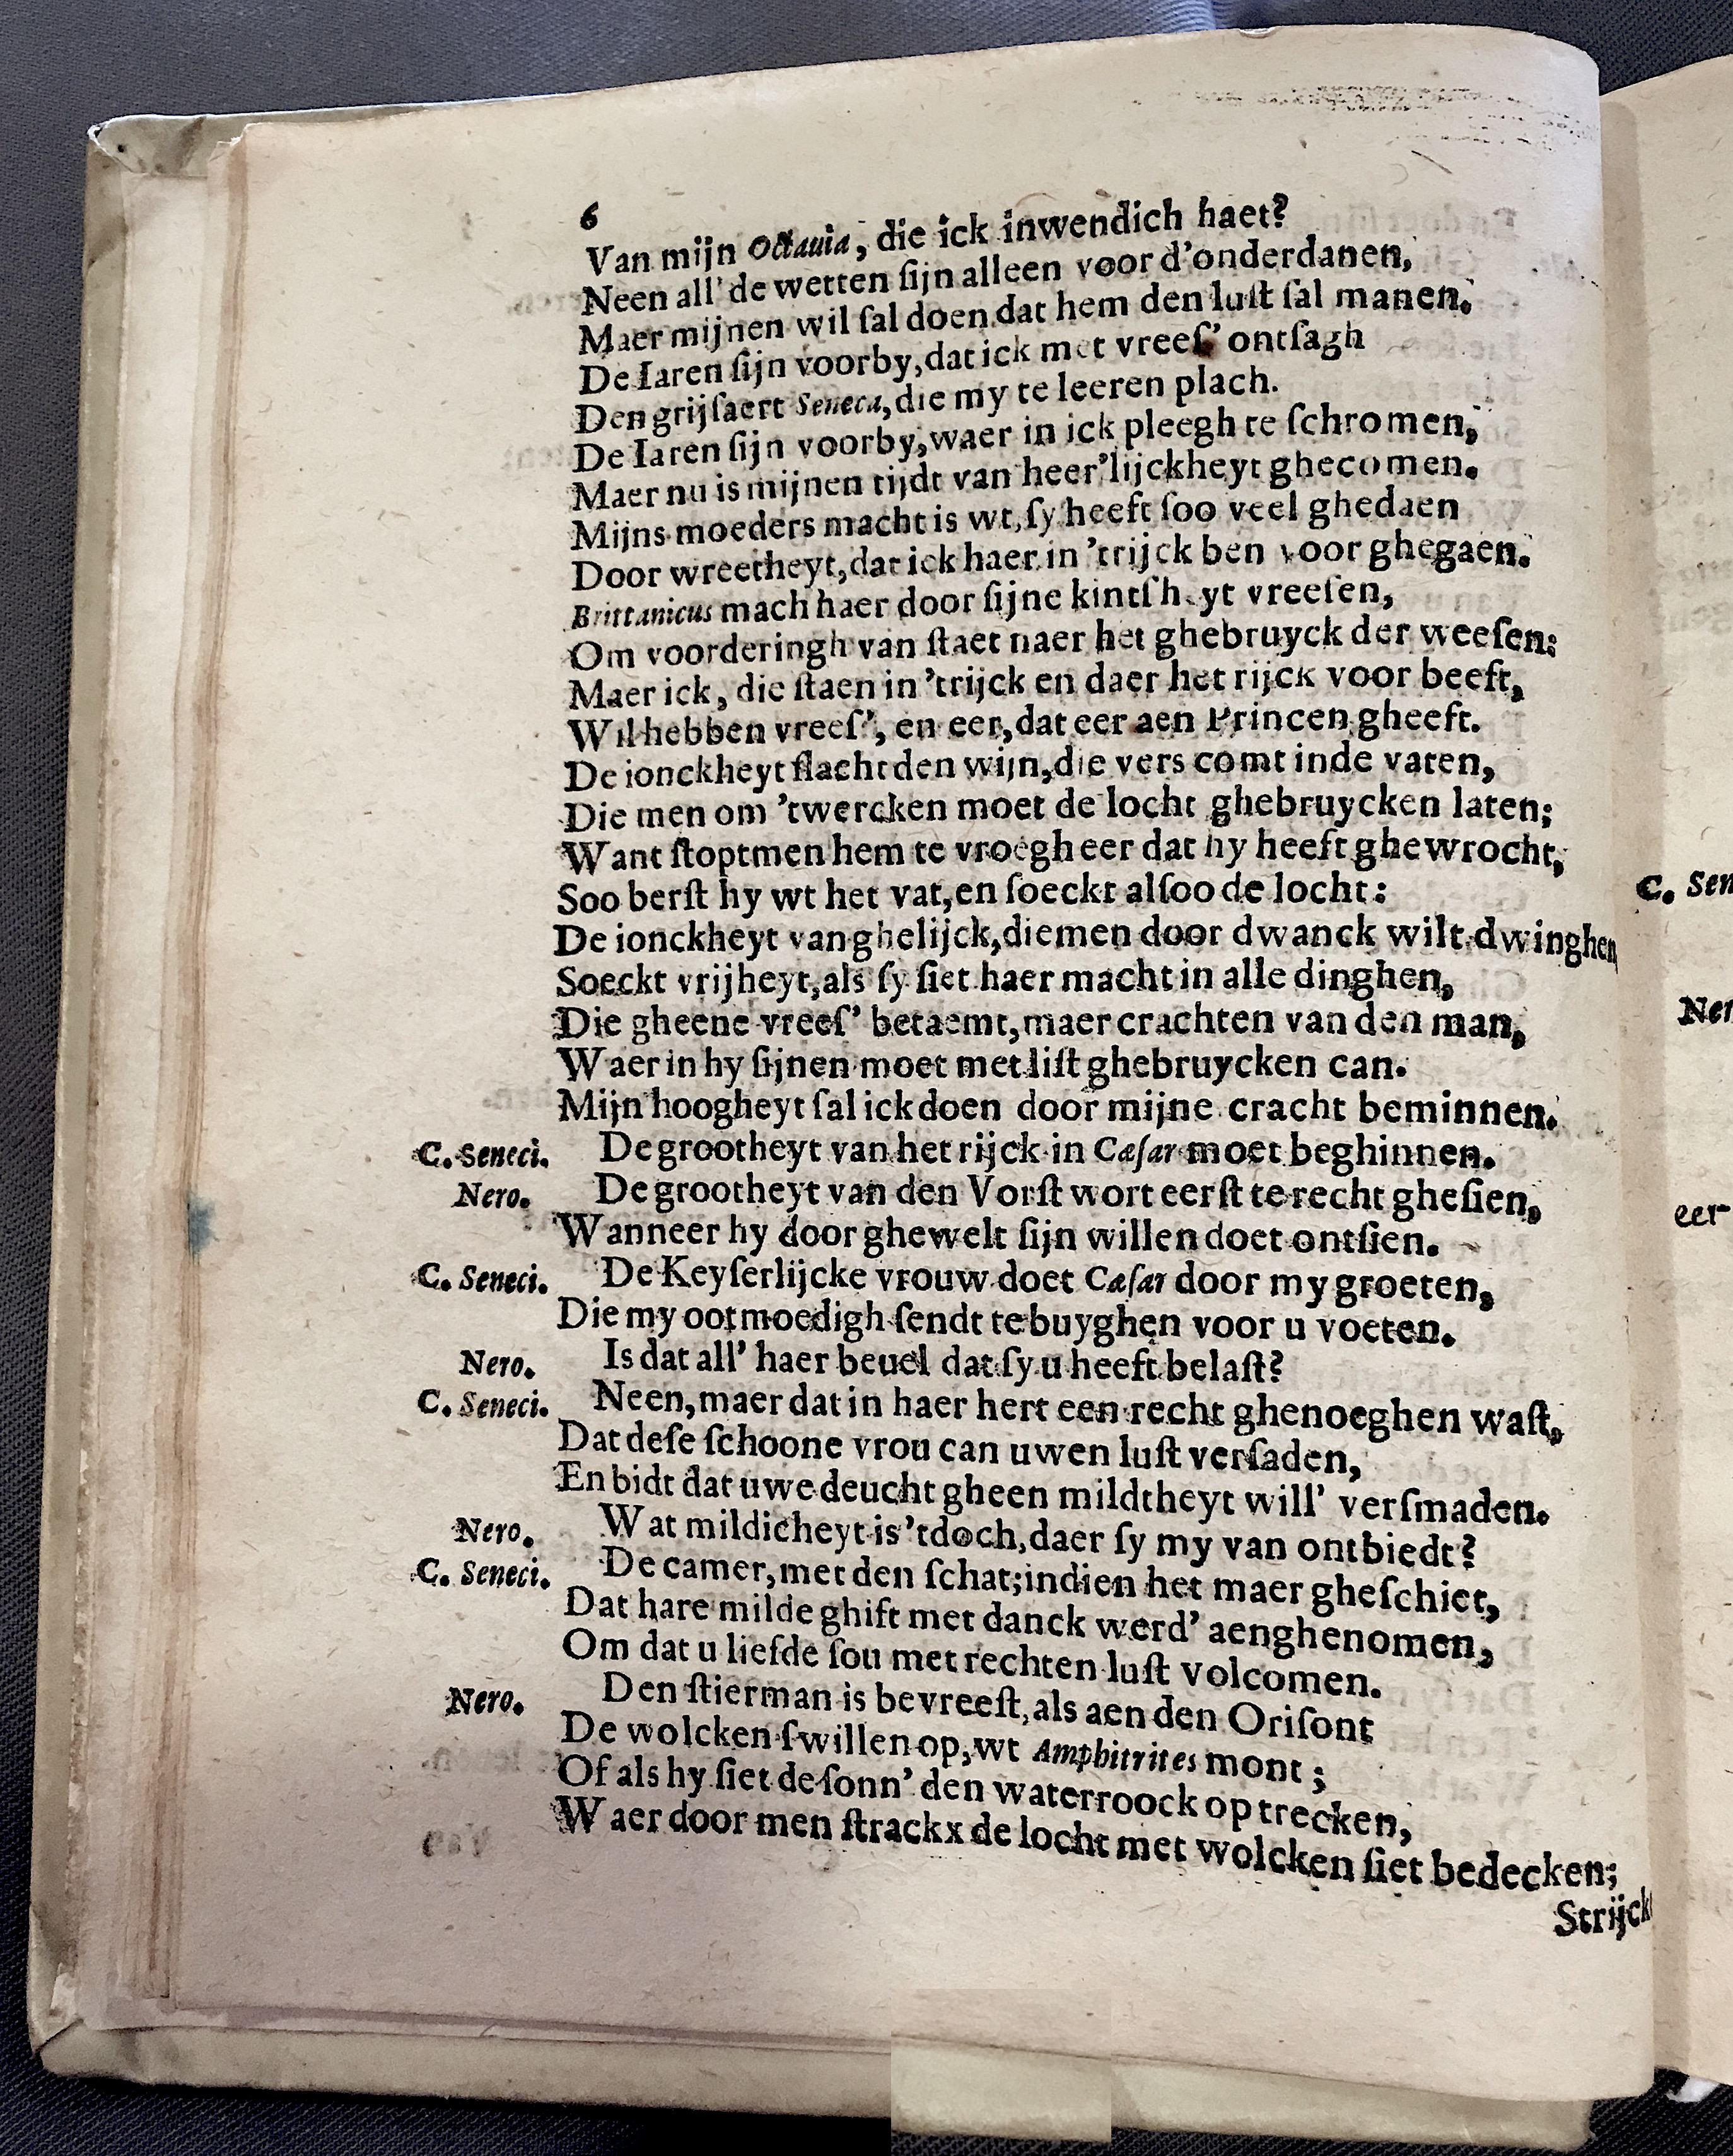 6
Van mijn Octauia, die ick inwendich haet?
Neen all' de wetten sijn alleen voor d'onderdanen,
Maer mijnen wil sal doen dat hem den lust sal manen.
De Iaren sijn voorby, dat ick met vrees' ontsagh
Den grijsaert Seneca, die my te leeren plach.
De Iaren sijn voorby, waer in ick pleegh te schromen,
Maer nu is mijnen tijdt van heer'lijckheyt ghecomen.
Mijns moeders macht is wt, sy heeft soo veel ghedaen
Door wreetheyt, dat ick haer in 'trijck ben voor ghegaen.
Brittanicus mach haer door sijne kintsheyt vreesen,
Om voorderingh van staet naer het ghebruyck der weesen:
Maer ick, die staen in 'trijck en daer het rijck voor beeft,
Wil hebben vrees', en eer, dat eer aen Princen gheeft.
De ionckheyt slacht den wijn, die vers comt inde vaten,
Die men om 'twercken moet de locht ghebruycken laten;
Want stoptmen hem te vroegh eer dat hy heeft ghewrocht,
Soo berst hy wt het vat, en soeckt alsoo de locht:
De ionckheyt van ghelijck, diemen door dwanck wilt dwinghen
Soeckt vrijheyt, als sy siet haer macht in alle dinghen,
Die gheene vrees' betaemt, maer crachten van den man,
Waer in hy sijnen moet met list ghebruycken can.
Mijn hoogheyt sal ick doen door mijne cracht beminnen.
C. Seneci. De grootheyt van het rijck in Cæsar moet beghinnen.
Nero. De grootheyt van den Vorst wort eerst te recht ghesien,
Wanneer hy door ghewelt sijn willen doet ontsien.
C. Seneci. De Keyserlijcke vrouw doet Cæsar door my groeten,
Die my ootmoedigh sendt te buyghen voor u voeten.
Nero. Is dat all' haer beuel dat sy u heeft belast?
C. Seneci. Neen, maer dat in haer hert een recht ghenoeghen wast,
Dat dese schoone vrou can uwen lust versaden,
En bidt dat uwe deucht gheen mildtheyt will' versmaden.
Nero. Wat mildicheyt is 'tdoch, daer sy my van ontbiedt?
C. Seneci. De camer, met den schat; indien het maer gheschiet,
Dat hare milde ghift met danck werd' aenghenomen,
Om dat u liefde sou met rechten lust volcomen.
Nero. Den stierman is bevreest, als aen den Orisont
De wolcken swillen op, wt Amphitrites mont;
Of als hy siet de sonn' den waterroock op trecken,
Waer door men strackx de locht met wolcken siet bedecken;
C. Sen
Ner
eer